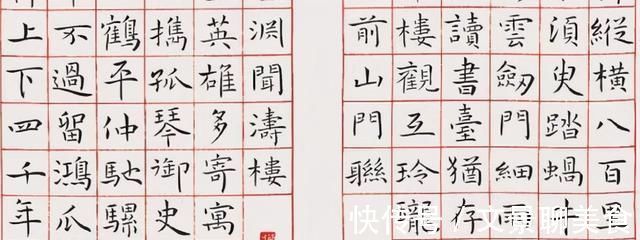 縱橫八百
須臾踏蝸
雲劒門細
讀書臺猶存
樓觀互玲瓏
前山門聯
淵聞濤樓
英雄多寄寓
擕孤琴御史
鶴平仲馳騾
不過留鴻爪
上下四千年
快传号/文景聊美食